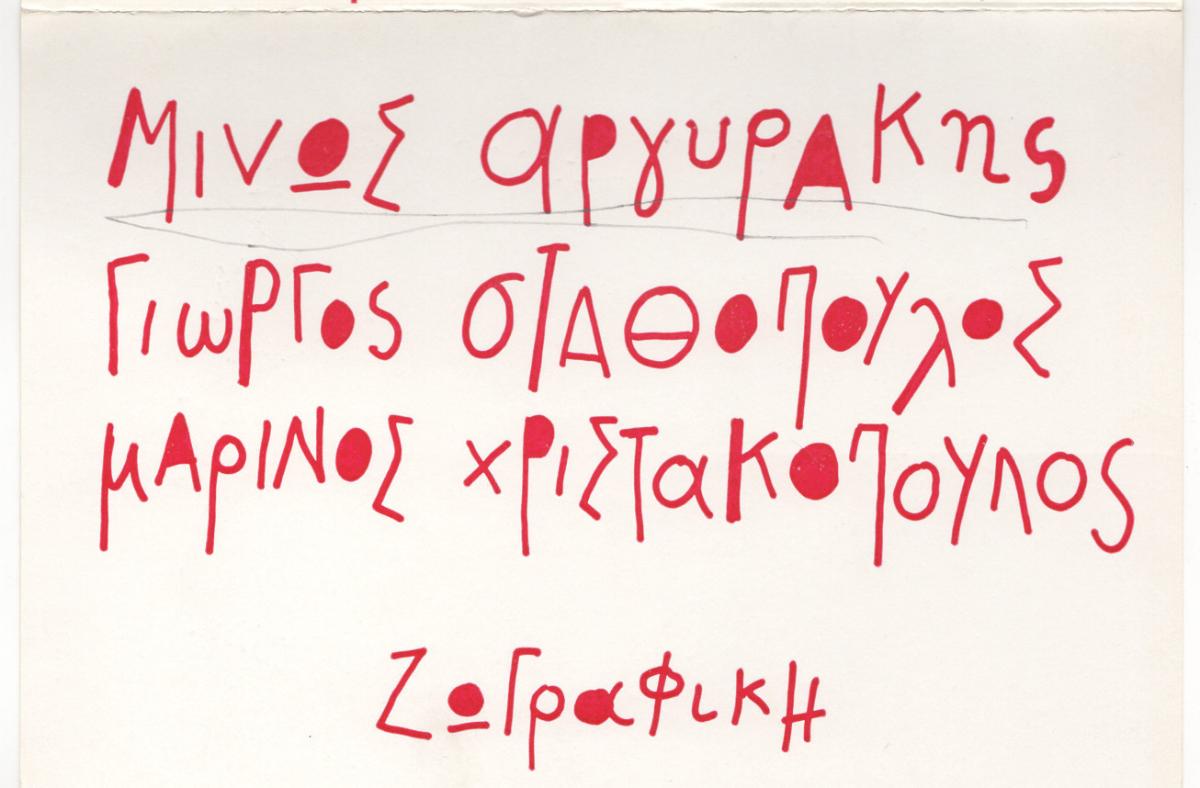 ΜινΩΣ αργυρΑκης
ΓιωρΓος σΤΑΘοπουλοΣ
μΑρΙΝΟΣ χΡιΣΤακοπουλος
ΖΩΓραφικΗ